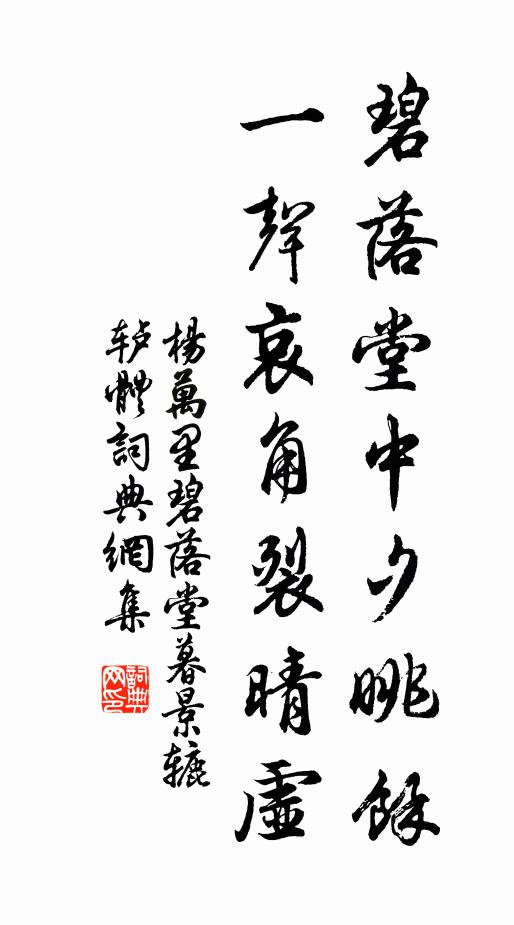 碧落堂中夕眺餘
一聲哀角裂晴虛
楊萬里碧落堂暮景辘
轳體詞典網集
詞典
网印